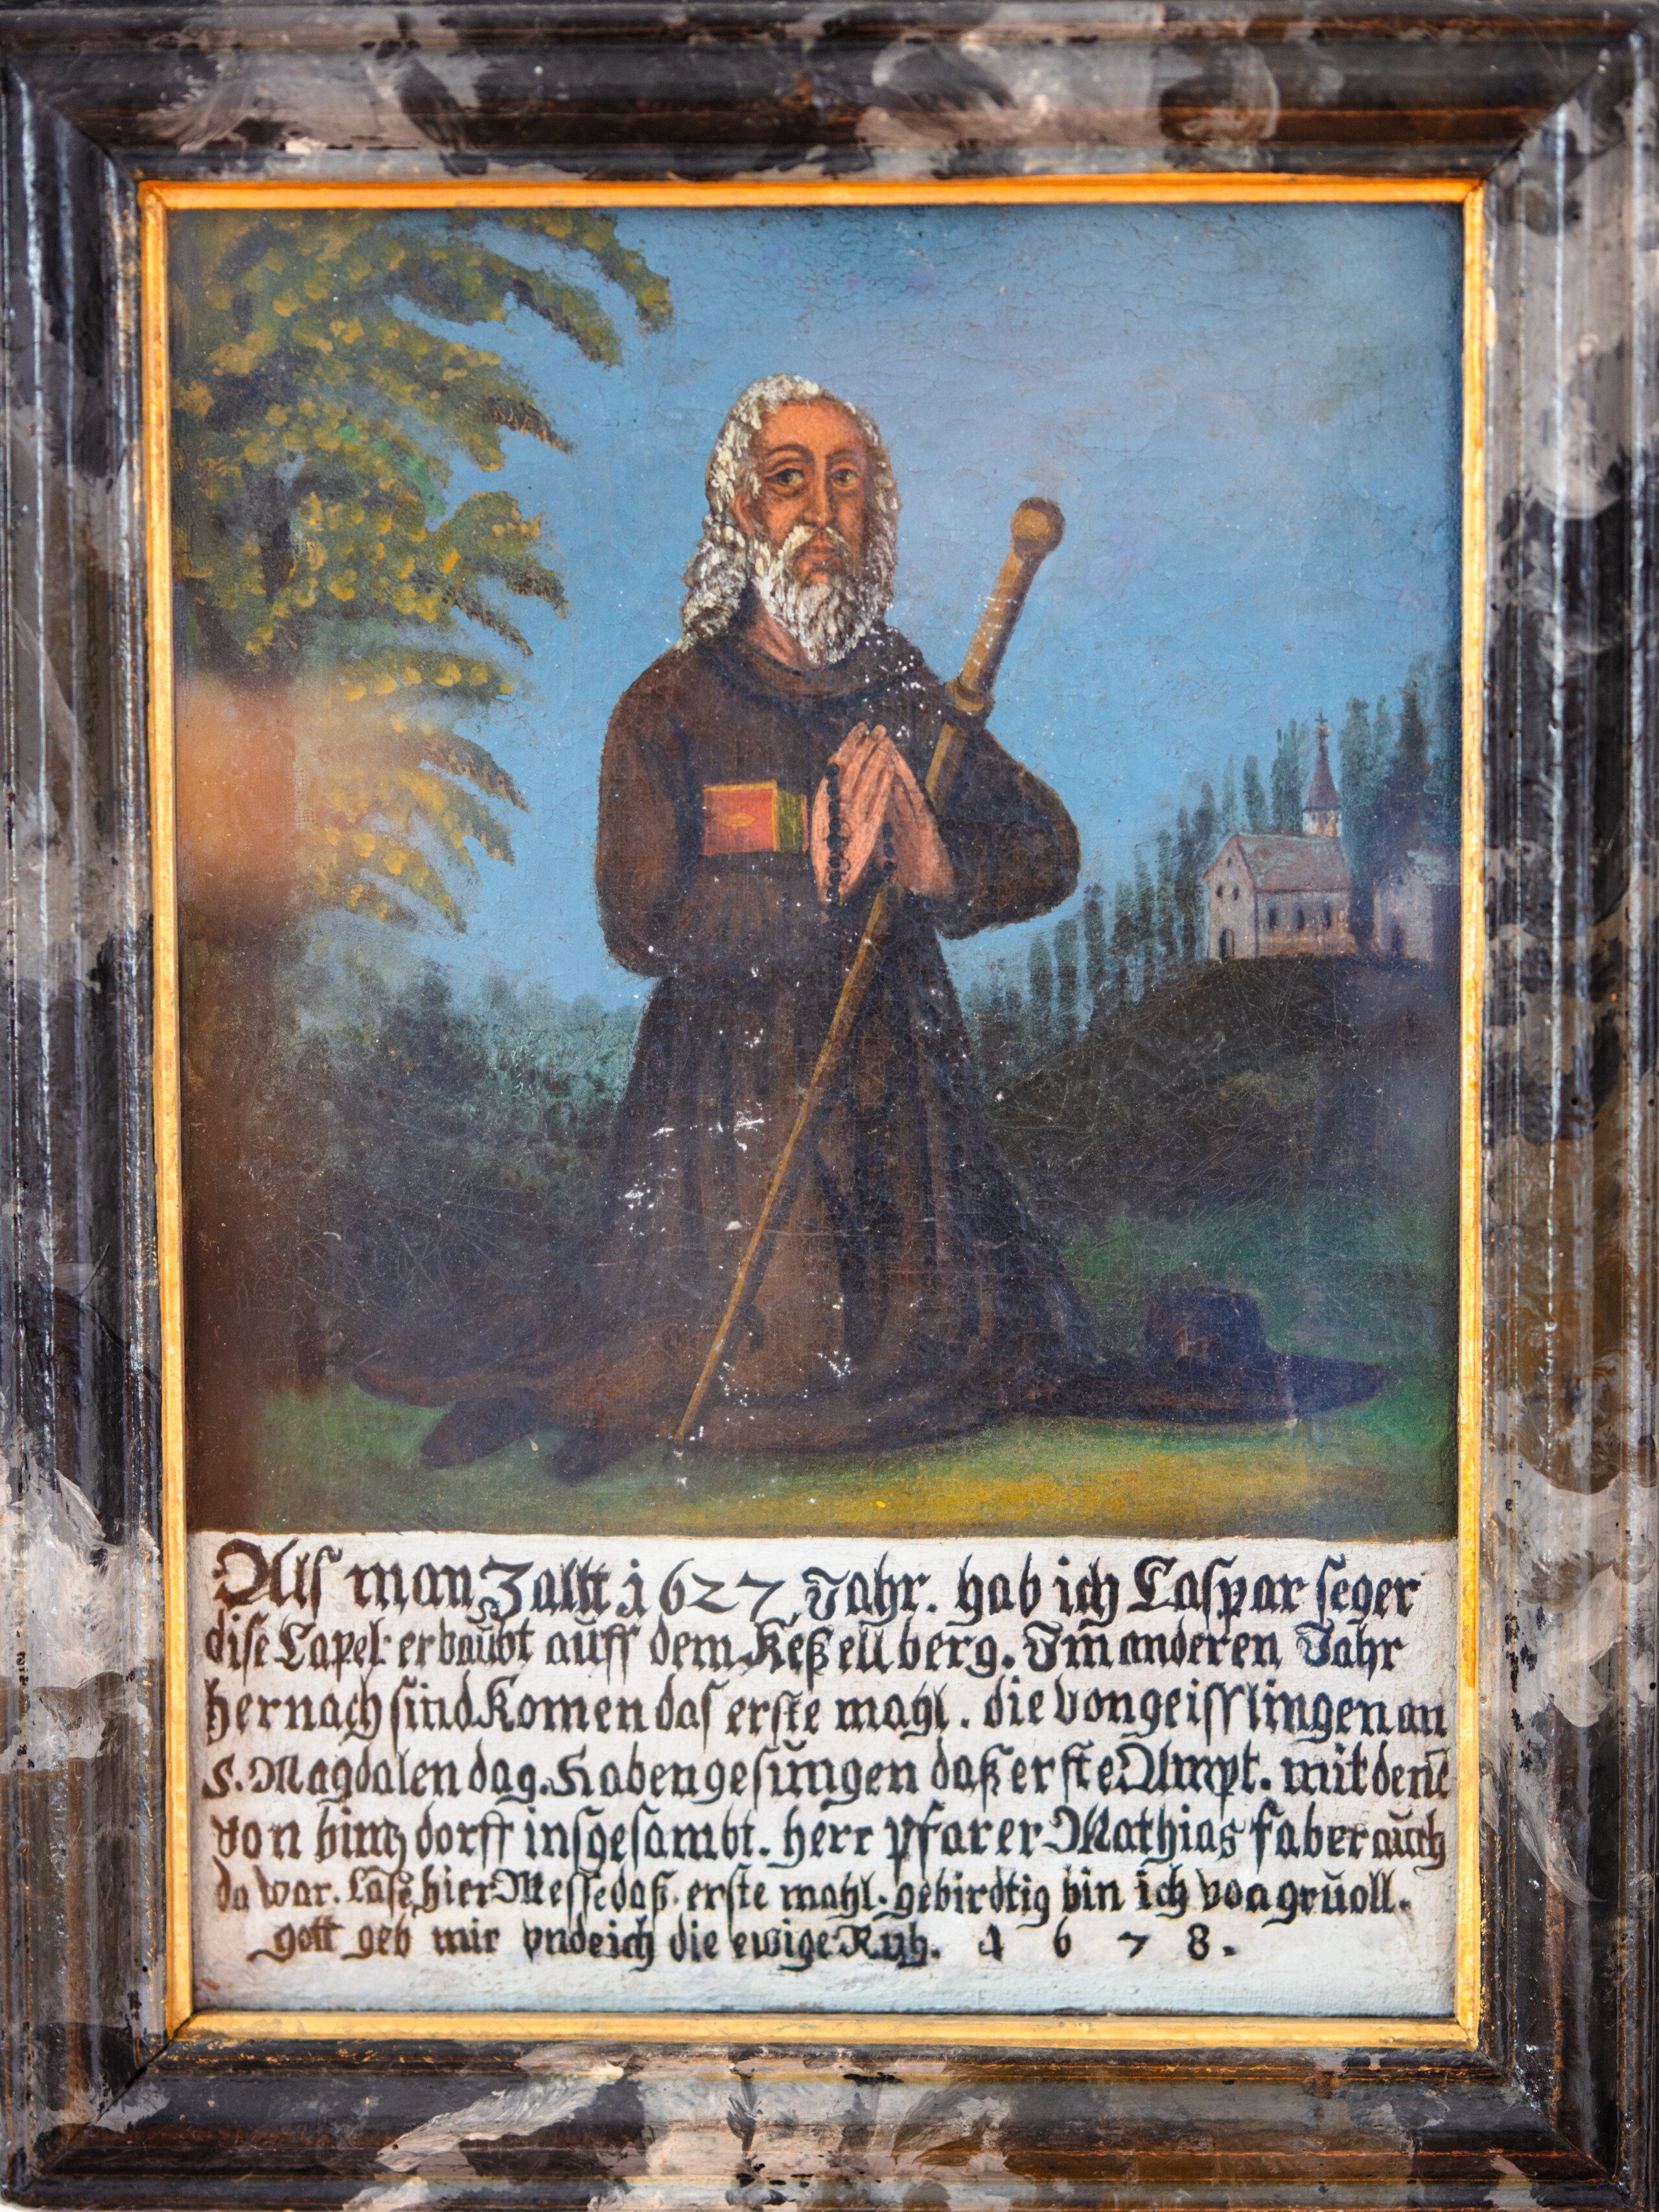 Alſ man Zalltt 1627 Jahr. hab ich Caſpar ſeger
diſe Capel erbaŭbt aŭff dem Keßellberg. Im anderen Jahr
hernach ſind Komen daſ erſte mahl. die von geiſſlingen an
S. Magdalen dag. Haben geſŭngen daß erſte Ampt. mit denē
von bintzdorff inſgeſambt. herr pfarer Mathias faber aŭch
da war. Laſe hier Meſſe daß erſte mahl. gebirdtig bin ich von grŭoll.
gott geb mir vnd eich die ewige Rŭh. 1678.